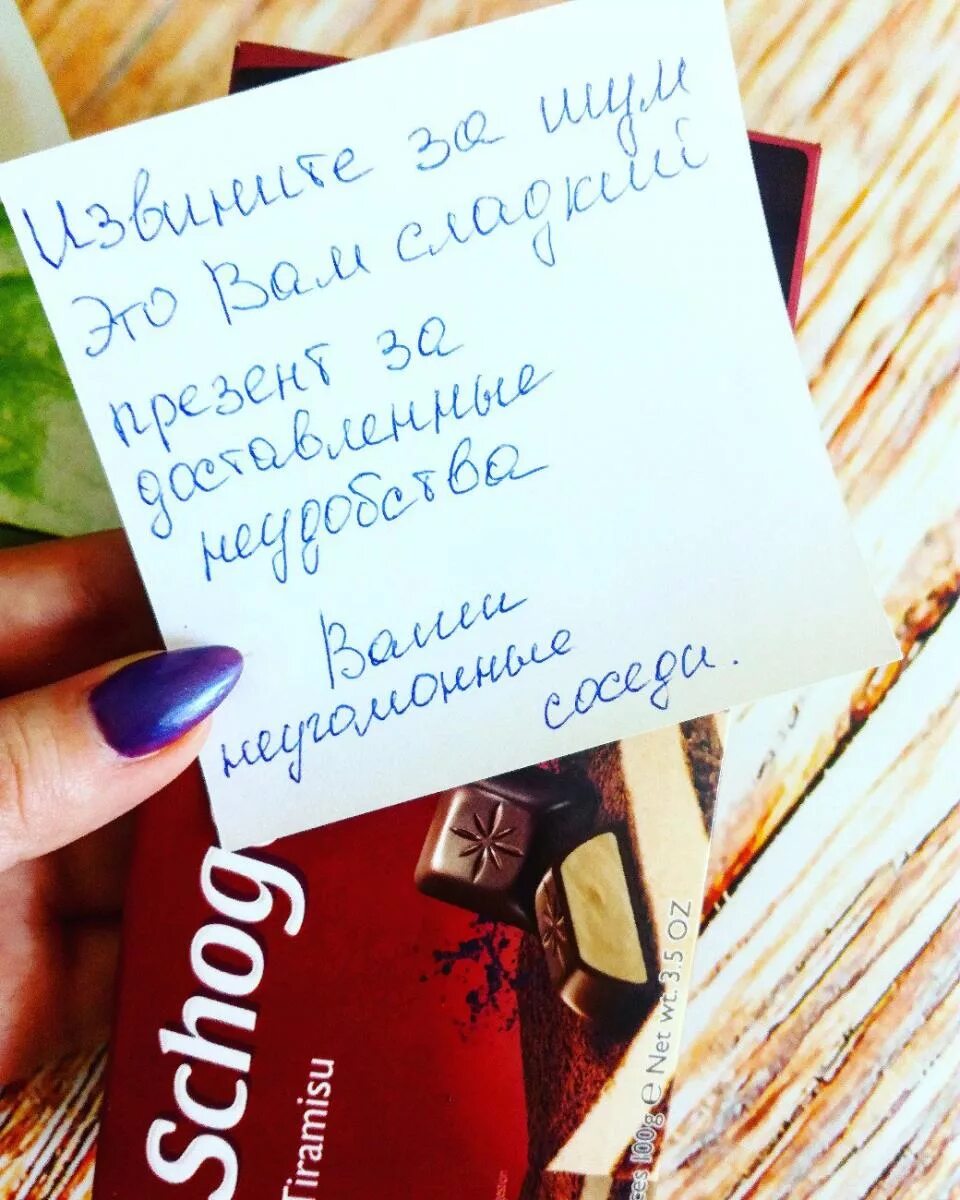 Извините за шум
Это Вам сладкий
презент за
доставленные
неудобства
Ваши
неугомонные
соседи.
Schog
Tiramisu
100g e Net wt. 3.5 OZ